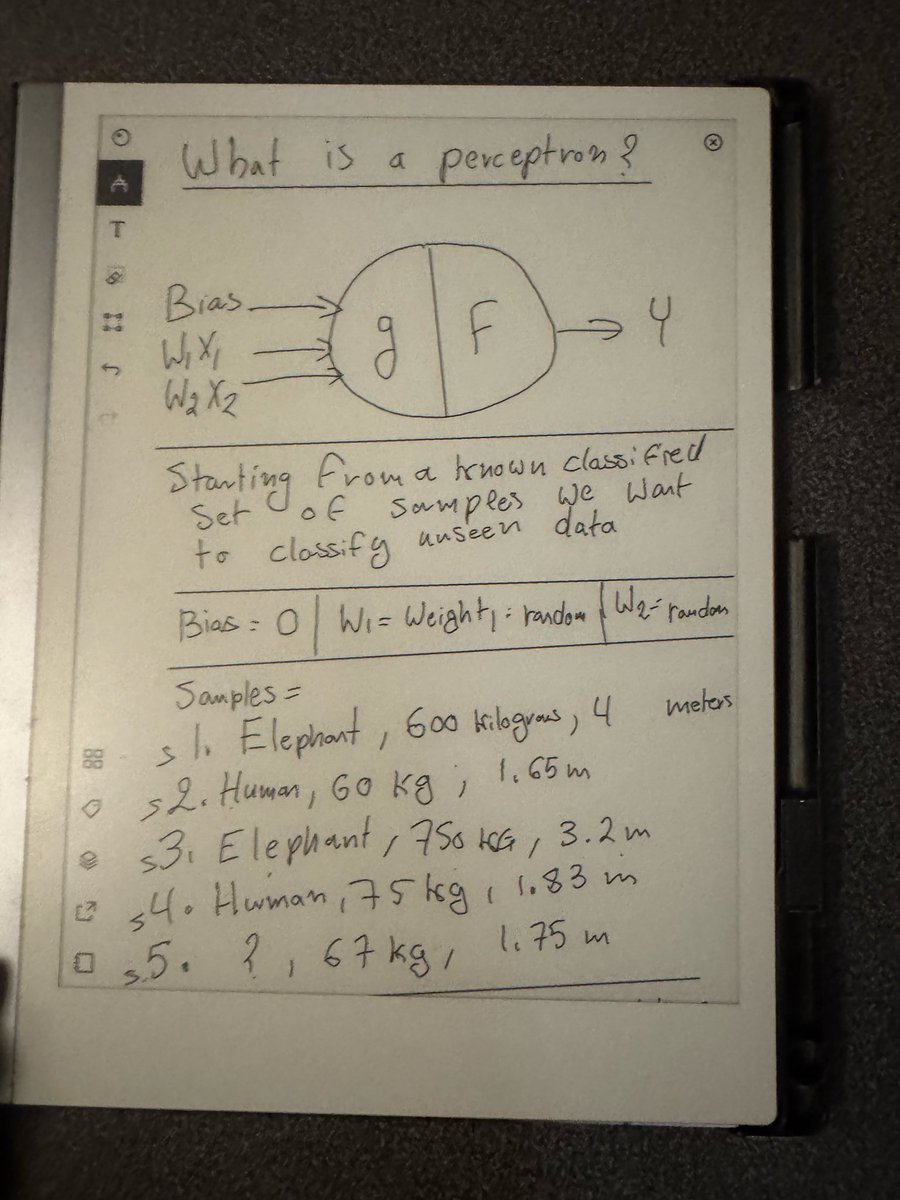 What is a perceptron?
Bias
W1X1
W2X2
g F
Y
Starting from a known classified
set of samples we want
to classify unseen data
Bias = 0 | W1 = Weight1 = random | W2 = random
Samples =
s1. Elephant, 600 kilograms, 4 meters
s2. Human, 60 kg, 1.65 m
s3. Elephant, 750 KG, 3.2 m
s4. Human, 75 kg, 1.83 m
s5. ?, 67 kg, 1.75 m